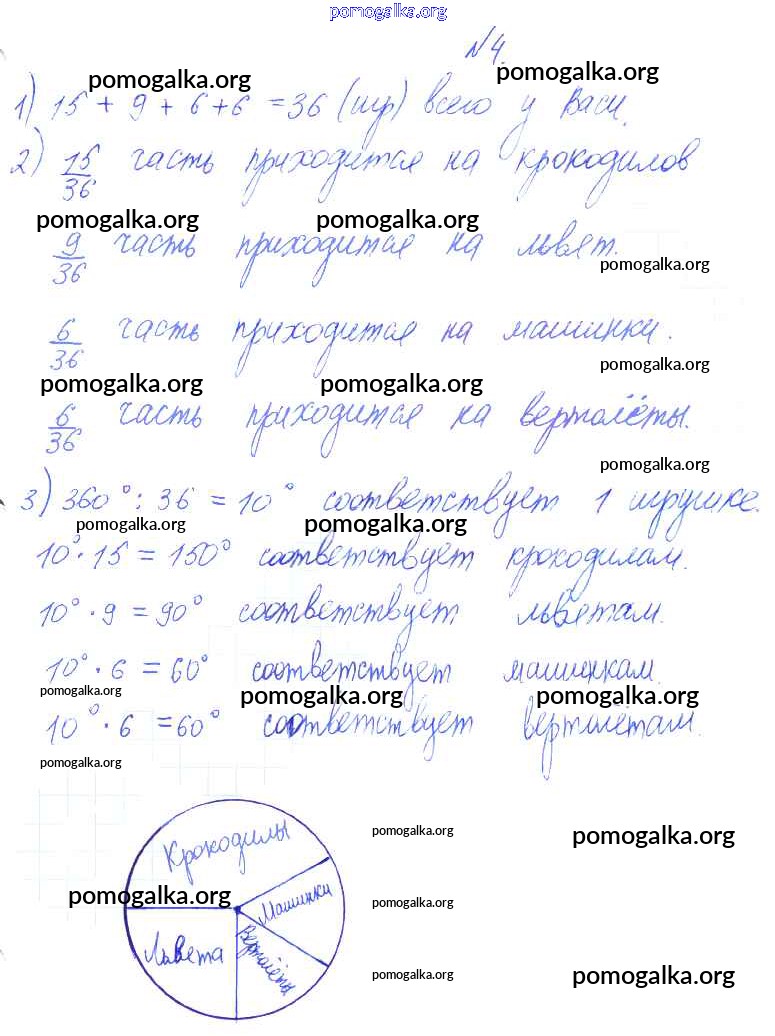 pomogalka.org
№4.
pomogalka.org pomogalka.org
1) 15 + 9 + 6 + 6 = 36 (игр) всего у Васи.
2) 15/36 часть приходится на крокодилов
pomogalka.org pomogalka.org
9/36 часть приходится на львят.
pomogalka.org
6/36 часть приходится на машинки.
pomogalka.org
pomogalka.org pomogalka.org
6/36 часть приходится на вертолёты.
pomogalka.org
3) 360° : 36 = 10° соответствует 1 игрушке.
pomogalka.org pomogalka.org
10° · 15 = 150° соответствует крокодилам.
10° · 9 = 90° соответствует львётам.
10° · 6 = 60° соответствует машинкам.
pomogalka.org pomogalka.org pomogalka.org
10° · 6 = 60° соответствует вертолётам.
pomogalka.org
Крокодилы
pomogalka.org pomogalka.org
pomogalka.org Машинки pomogalka.org
Львета Вертолёты
pomogalka.org pomogalka.org